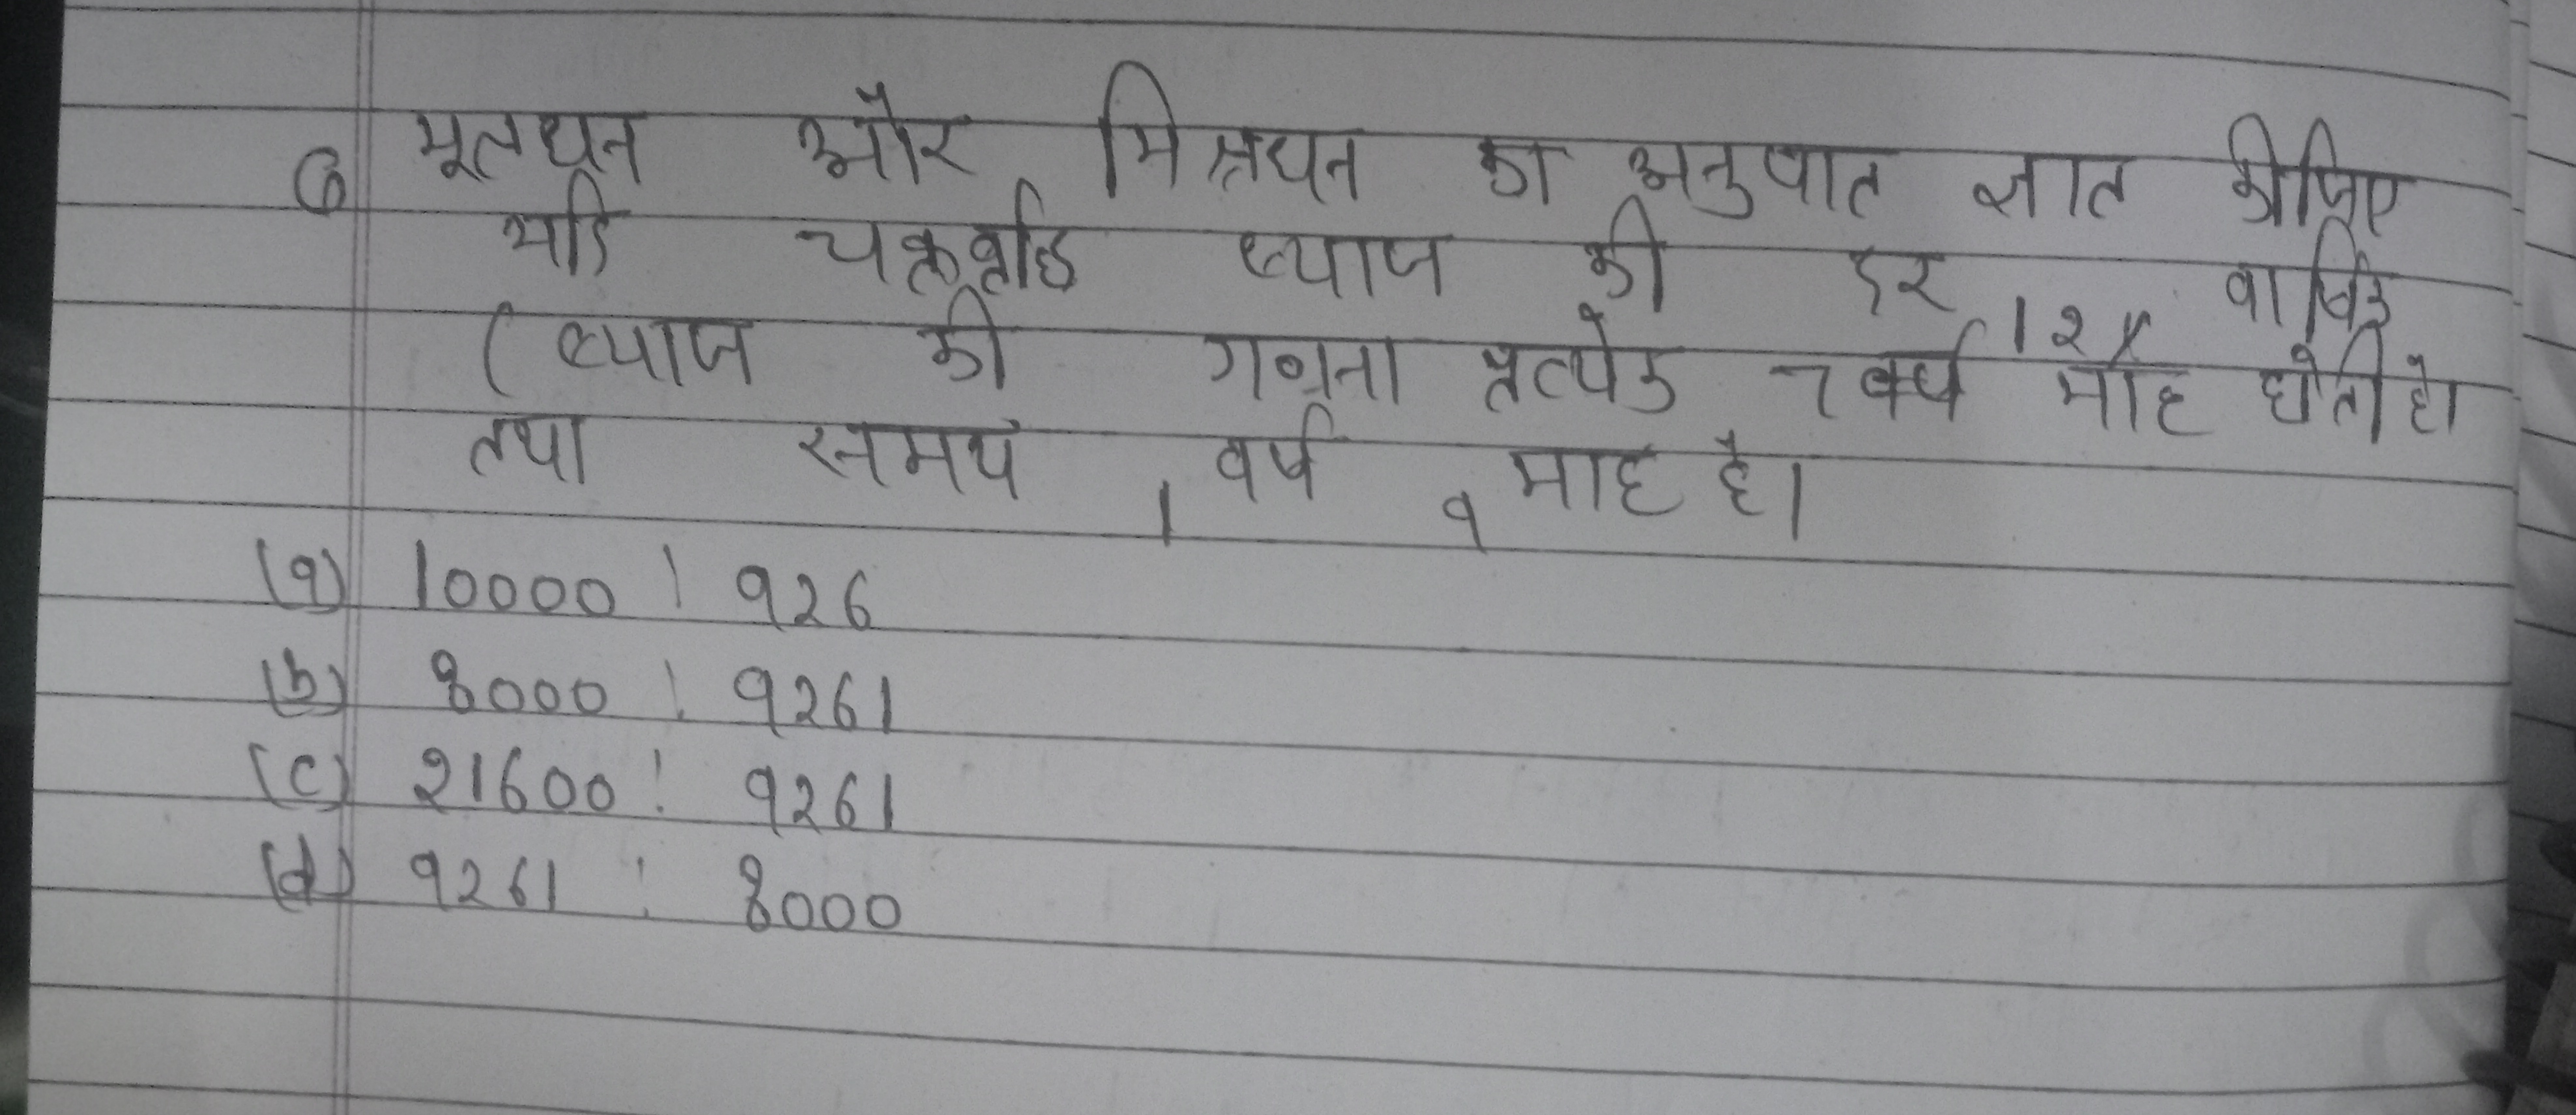 6 मूलधन और मिश्रधन का अनुपात ज्ञात कीजिए
यदि चक्रवृद्धि ब्याज की दर 12% वार्षिक
(ब्याज की गणना प्रत्येक 7 वर्ष माह होती हो
तथा समय 1 वर्ष 9 माह है।
(a) 10000 : 926
(b) 8000 : 9261
(c) 21600 : 9261
(d) 9261 : 8000